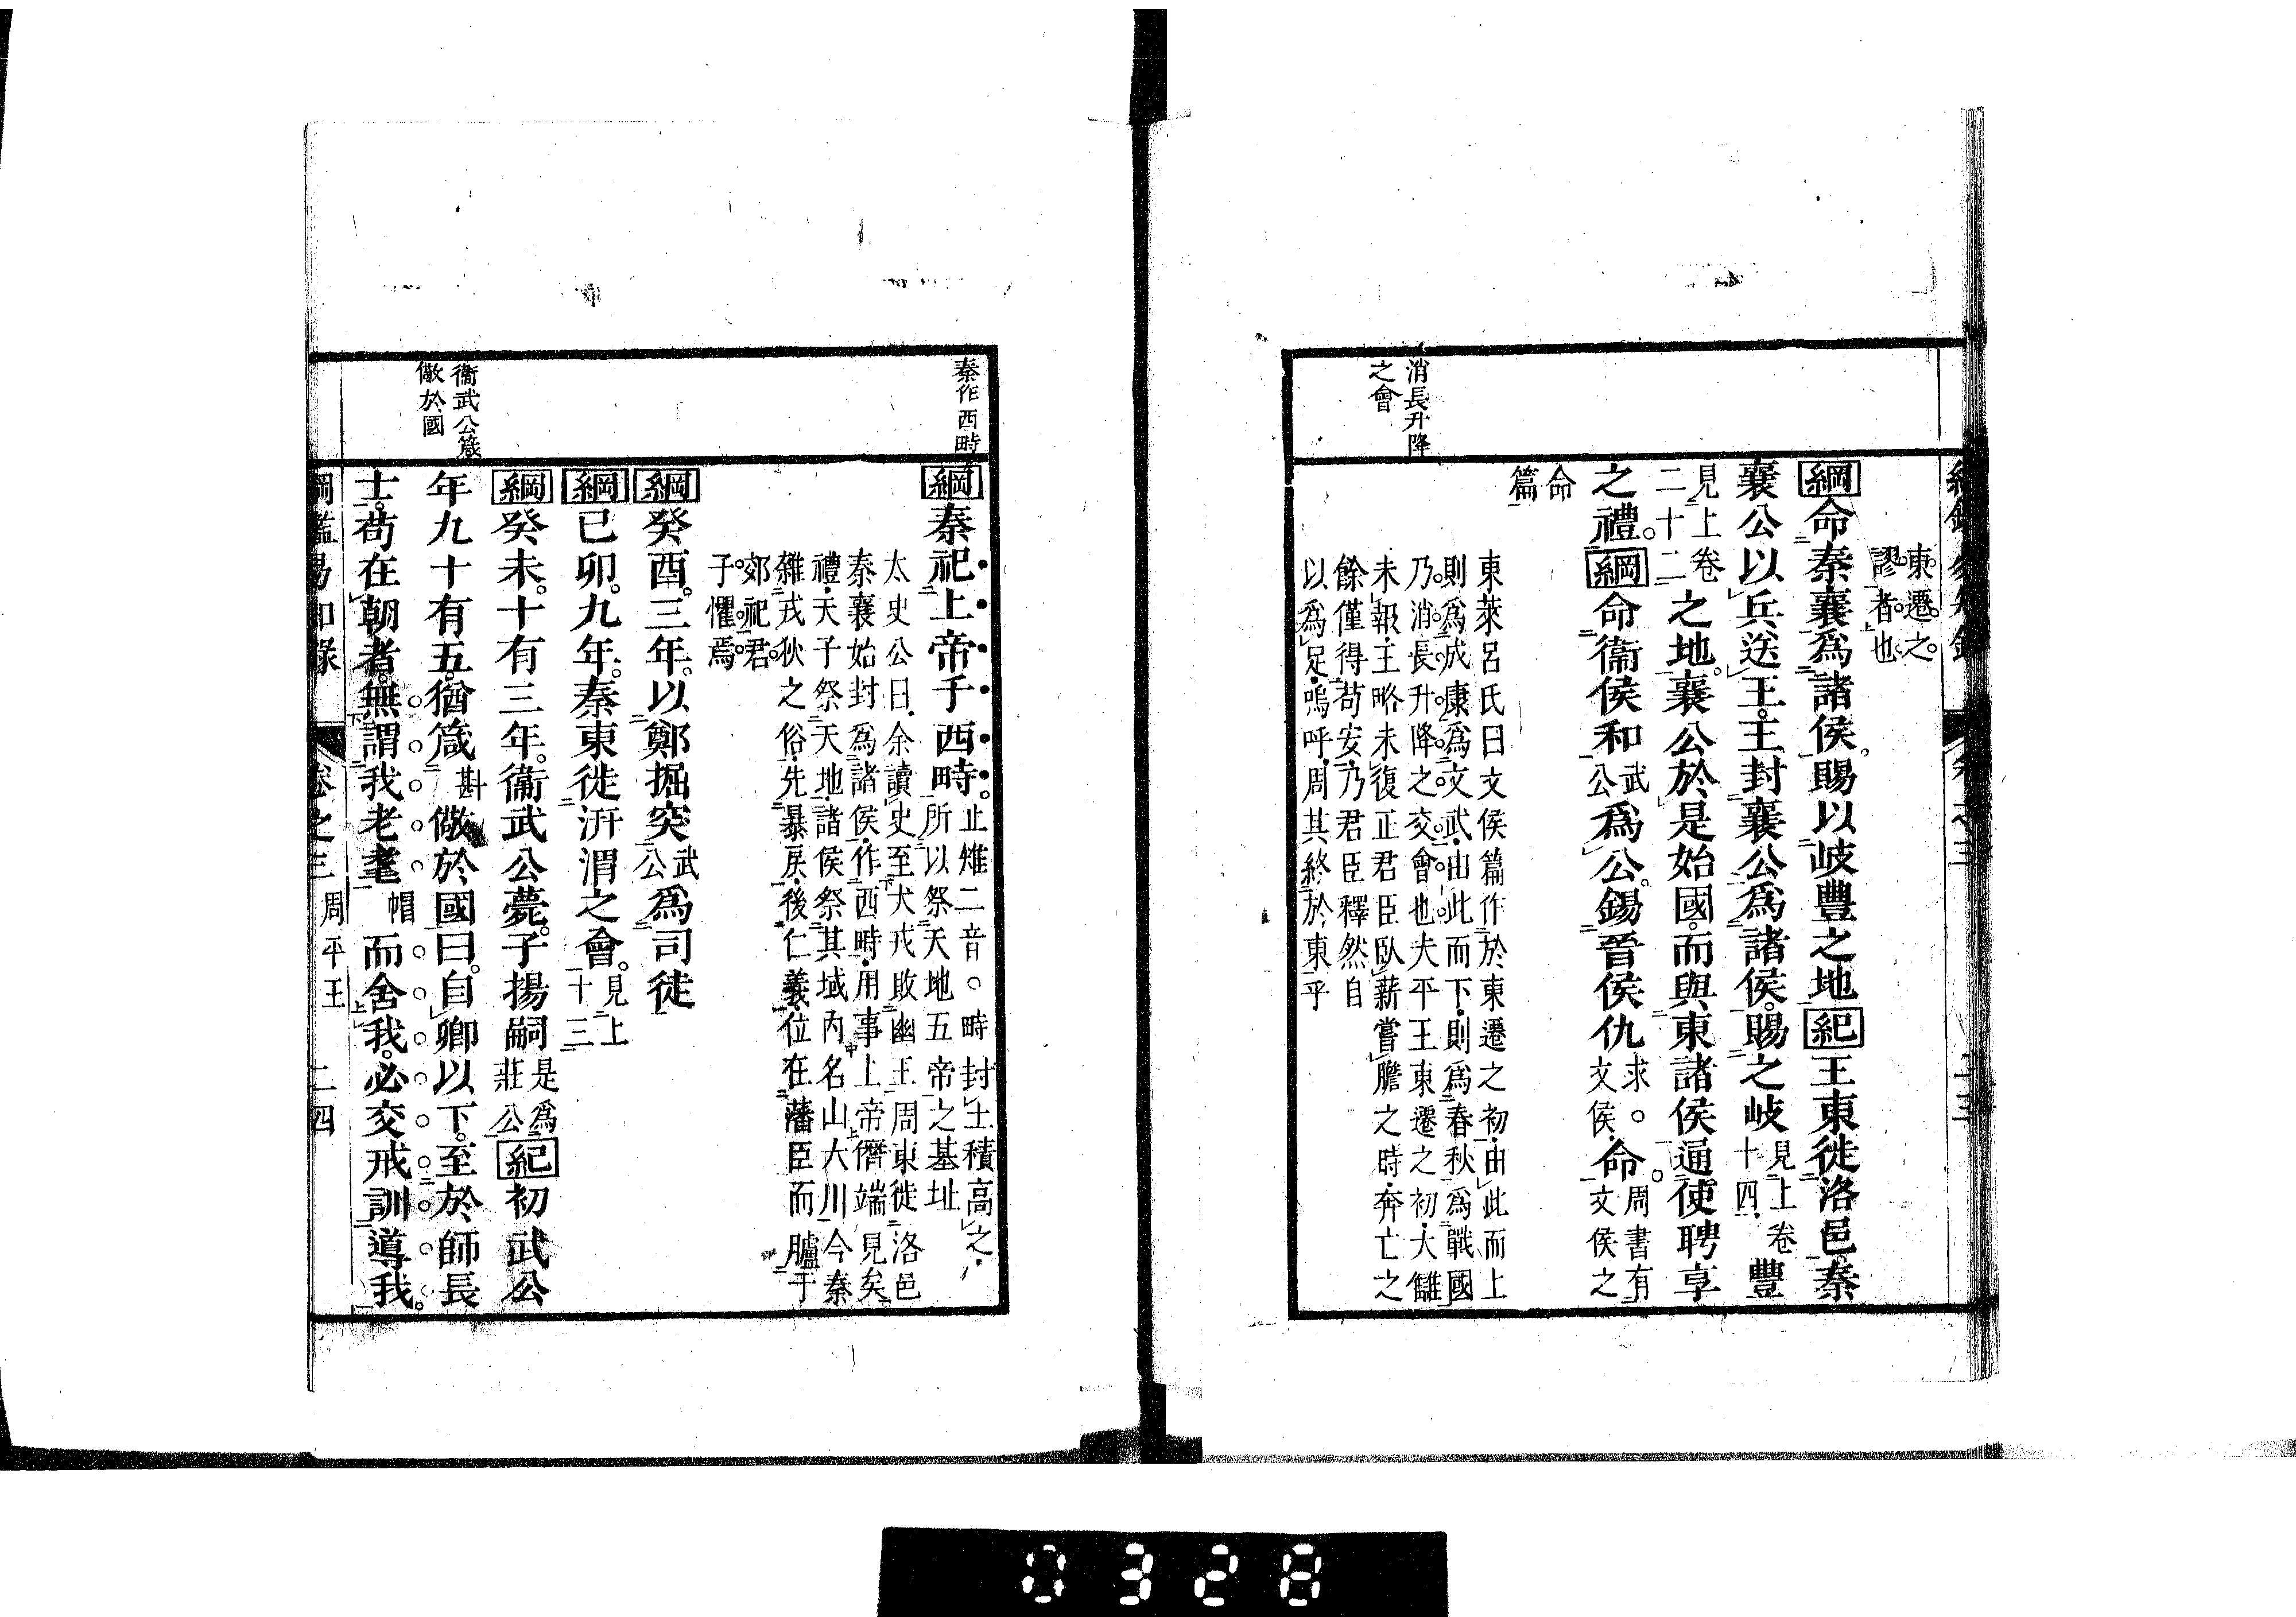 東遷之
謬者也
綱命秦襄爲諸侯賜以岐豐之地紀王東徙洛邑秦
襄公以兵送王王封襄公爲諸侯賜之岐見上卷十四豐
見上卷二十二之地襄公於是始國而與東諸侯通使聘享
之禮綱命衞侯和武公爲公錫晉侯仇求○文侯命周書有文侯之
命篇
東萊呂氏曰文侯篇作於東遷之初由此而上
則爲成康爲文武由此而下則爲春秋爲戰國
乃消長升降之交會也夫平王東遷之初大讎
未報王略未復正君臣臥薪嘗膽之時奔亡之
餘僅得苟安乃君臣釋然自
以爲足嗚呼周其終於東乎
消長升降
之會
秦作西畤
綱秦祀上帝于西畤止雉二音○畤封土積高之所以祭天地五帝之基址
太史公曰余讀史至犬戎敗幽王周東徙洛邑
秦襄始封爲諸侯作西畤用事上帝僭端見矣
禮天子祭天地諸侯祭其域內名山大川今秦
雜戎狄之俗先暴戾後仁義位在藩臣而臚于
郊祀君
子懼焉
綱癸酉三年以鄭掘突武公爲司徒
綱己卯九年秦東徙汧渭之會見上十三
綱癸未十有三年衞武公薨子揚嗣是爲莊公紀初武公
年九十有五猶箴斟儆於國曰自卿以下至於師長
士苟在朝者無謂我老耄帽而舍我必交戒訓導我
衞武公箴
儆於國
綱鑑易知錄 卷之三 周平王 二四
0328